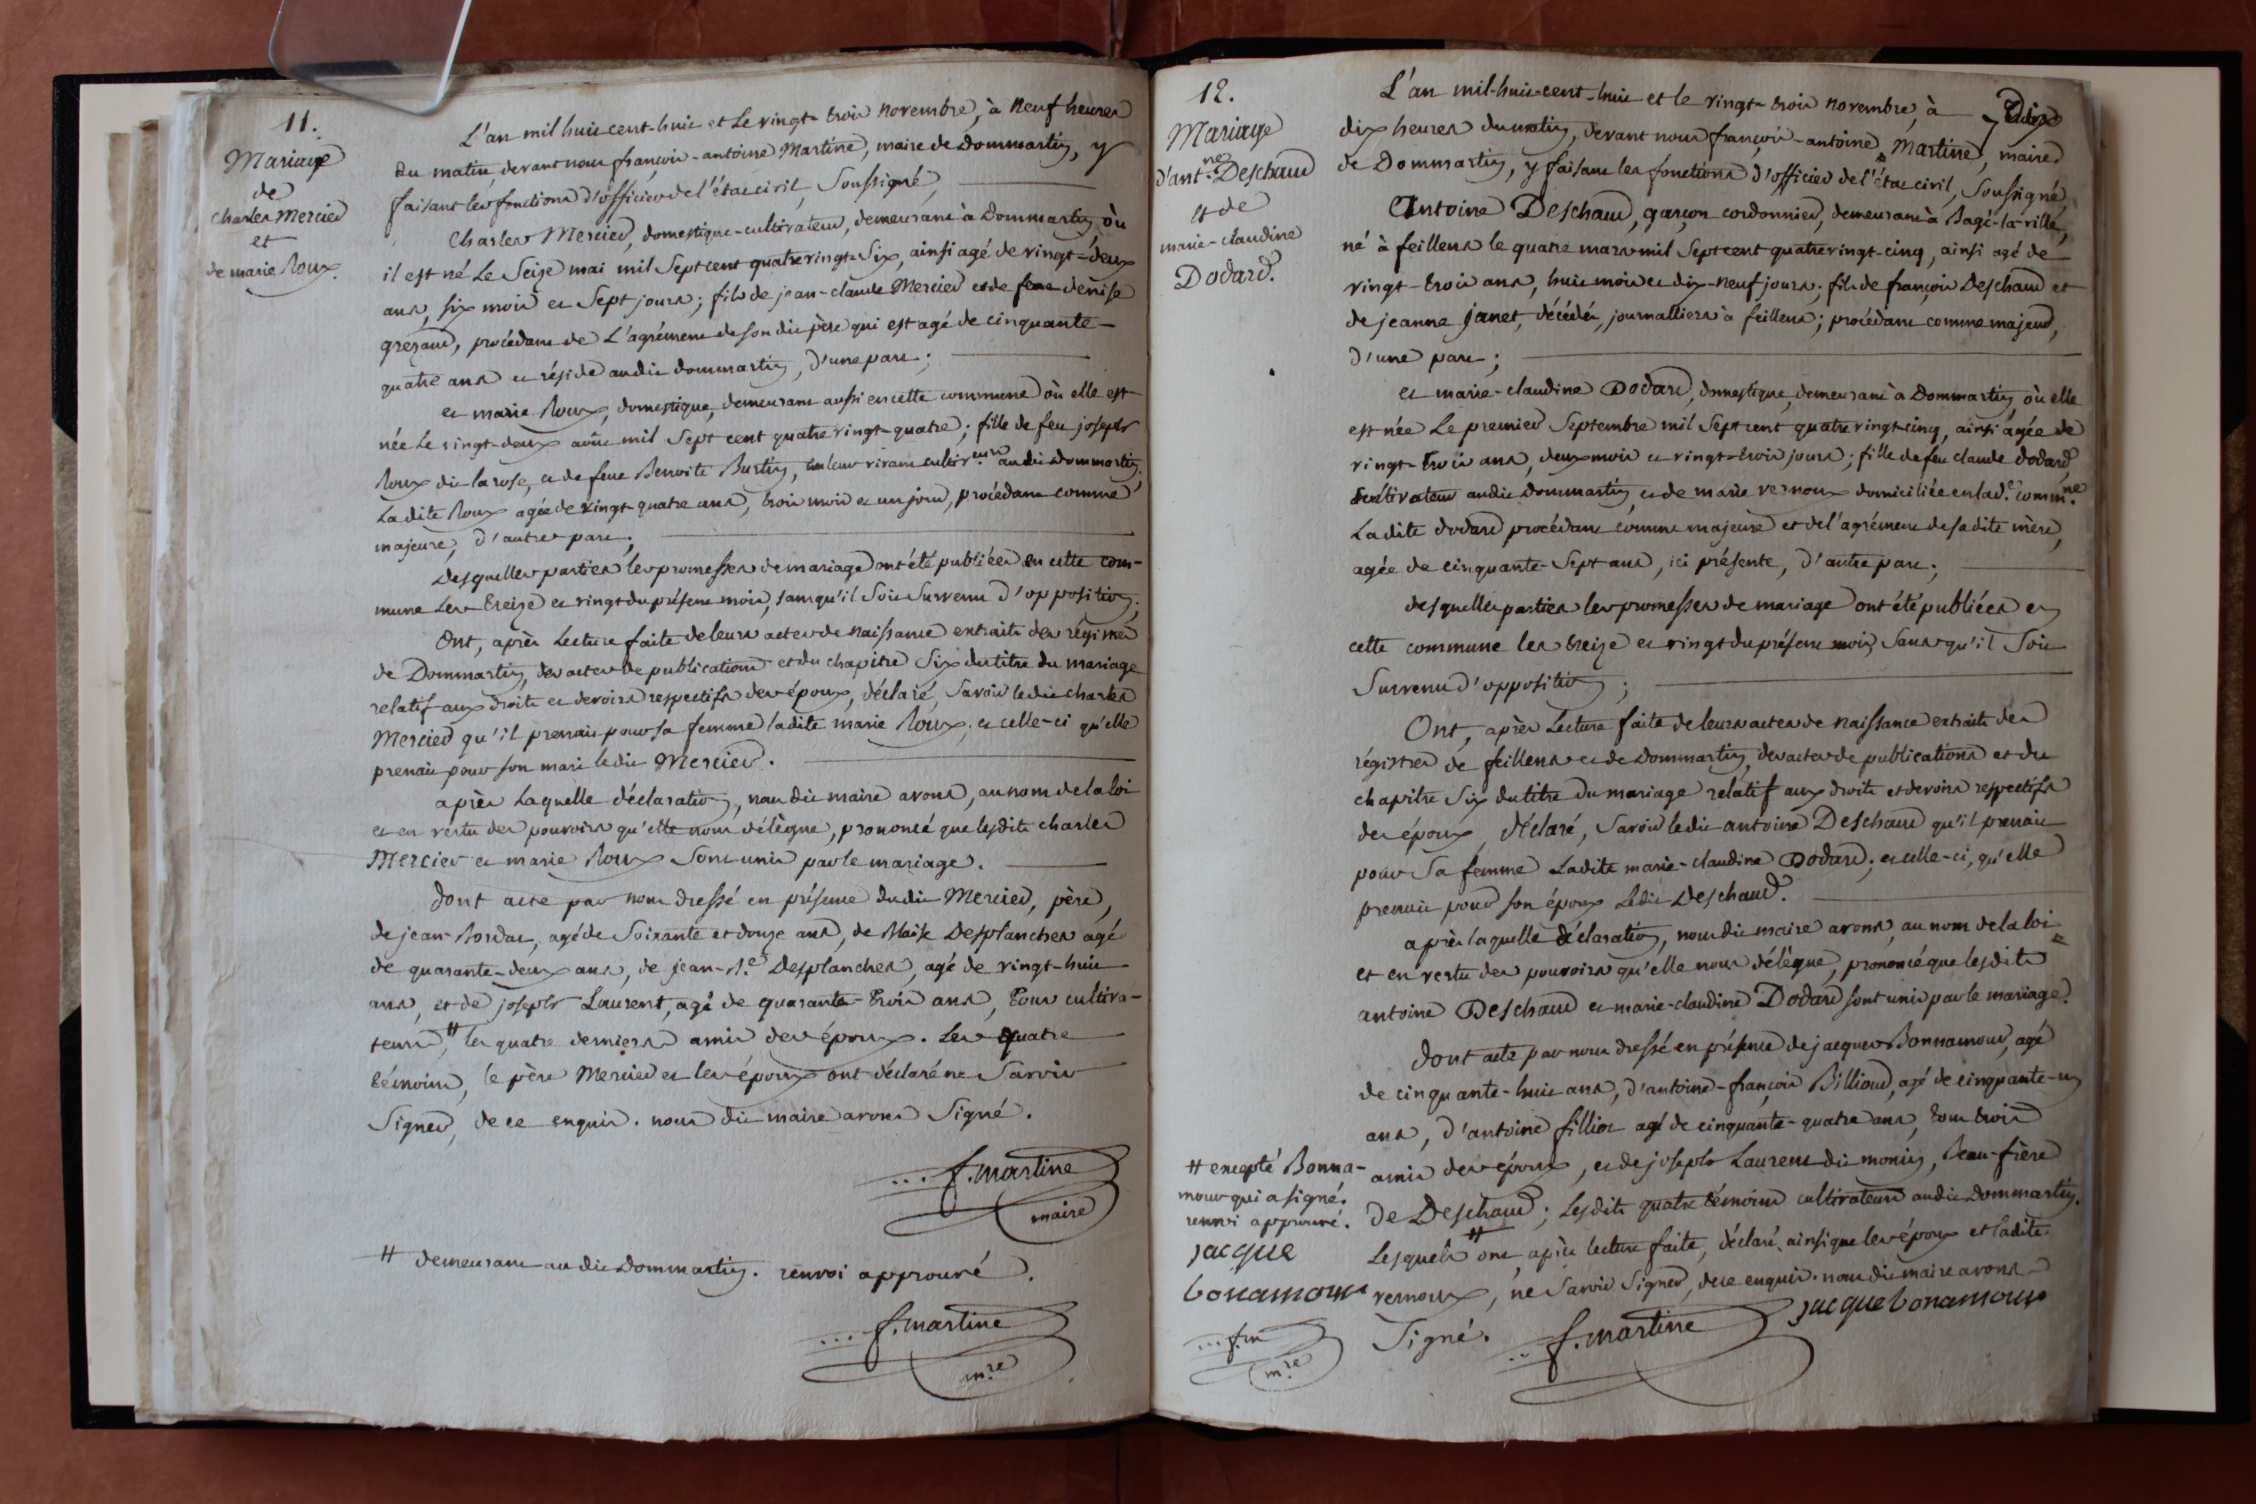 11.
Mariage
de
Charles Mercier
et
de marie Roux.
L'an mil huit cent-huit et le vingt-trois novembre, à neuf heures
du matin, devant nous françois-antoine Martine, maire de Dommartin, y
faisant les fonctions d'officier de l'état civil, soussigné,
Charles Mercier, domestique-cultivateur, demeurant à Dommartin, où
il est né le seize mai mil sept cent quatre vingt-six, ainsi agé de vingt-deux
ans, six mois et sept jours; fils de jean-claude Mercier et de feue denise
greyaud, procédant de l'agrément de son dit père qui est agé de cinquante-
quatre ans et réside audit dommartin, d'une part;
et marie Roux, domestique, demeurant aussi en cette commune où elle est
née le vingt-deux août mil sept cent quatre vingt-quatre; fille de feu joseph
Roux dit la rose, et de feue Benoite Burtin, de leur vivant cultiv.eurs audit dommartin;
la dite Roux agée de vingt-quatre ans, trois mois et un jour, procédant comme
majeure, d'autre part;
desquelles parties les promesses de mariage ont été publiées en cette com-
mune les treize et vingt du présent mois, sans qu'il soit survenu d'opposition;
Ont, après lecture faite de leurs actes de naissance extraits des régistres
de Dommartin, des actes de publications et du chapitre six du titre du mariage
relatif aux droits et devoirs respectifs des époux, déclaré, savoir ledit charles
Mercier qu'il prenait pour sa femme ladite marie Roux, et celle-ci qu'elle
prenait pour son mari ledit Mercier.
après laquelle déclaration, nous dit maire avons, au nom de la loi
et en vertu des pouvoirs qu'elle nous délègue, prononcé que lesdits charles
Mercier et marie Roux sont unis par le mariage.
dont acte par nous dressé en présence dudit Mercier, père,
de jean Bordat, agé de soixante et douze ans, de Blaise Desplanches agé
de quarante-deux ans, de jean-B.te Desplanches, agé de vingt-huit
ans, et de joseph Laurent, agé de quarante-trois ans, tous cultiva-
teurs # les quatre derniers amis des époux. Les quatre
témoins, le père Mercier et les époux ont déclaré ne savoir
signer, de ce enquis. nous dit maire avons signé.
... f. martine
maire
# demeurant audit Dommartin. renvoi approuvé.
... f. martine
m.re
12.
Mariage
d'ant.ne Deschaud
et de
marie-claudine
Dodard.
L'an mil-huit-cent-huit et le vingt-trois novembre, à
dix heures du matin, devant nous françois-antoine Martine, maire
de Dommartin, y faisant les fonctions d'officier de l'état civil, soussigné,
Antoine Deschaud, garçon cordonnier, demeurant à Bagé-la-ville,
né à feillens le quatre mars mil sept cent quatre vingt-cinq, ainsi agé de
vingt-trois ans, huit mois et dix-neuf jours; fils de françois Deschaud et
de jeanne Janet, décédés, journalliers à feillens; procédant comme majeur,
d'une part;
et marie-claudine Dodard, domestique, demeurant à Dommartin, où elle
est née le premier septembre mil sept cent quatre vingt-cinq, ainsi agée de
vingt-trois ans, deux mois et vingt-trois jours; fille de feu claude dodard,
cultivateur audit dommartin, et de marie vernoux domiciliée en lad.e comm.ne
la dite dodard procédant comme majeure et de l'agrément de sadite mère,
agée de cinquante-sept ans, ici présente, d'autre part;
desquelles parties les promesses de mariage ont été publiées en
cette commune les treize et vingt du présent mois, sans qu'il soit
survenu d'opposition;
Ont, après lecture faite de leurs actes de naissance extraits des
régistres de feillens et de Dommartin, des actes de publications et du
chapitre six du titre du mariage relatif aux droits et devoirs respectifs
des époux, déclaré, savoir ledit antoine Deschaud qu'il prenait
pour sa femme ladite marie-claudine Dodard, et celle-ci, qu'elle
prenait pour son époux ledit Deschaud.
après laquelle déclaration, nous dit maire avons, au nom de la loi
et en vertu des pouvoirs qu'elle nous délègue, prononcé que lesdits
antoine Deschaud et marie-claudine Dodard sont unis par le mariage.
dont acte par nous dressé en présence de jacques Bonnamour, agé
de cinquante-huit ans, d'antoine-françois Billioud, agé de cinquante-un
ans, d'antoine fillion agé de cinquante-quatre ans, tous trois
amis des époux, et de joseph Laurent dit monin, beau-frère
de Deschaud; lesdits quatre témoins cultivateurs audit Dommartin.
Lesquels # ont, après lecture faite, déclaré, ainsi que les époux et ladite
vernoux, ne savoir signer, de ce enquis. nous dit maire avons
signé.
.. f. martine
jacque bonamour
# excepté Bonna-
mour qui a signé.
renvoi approuvé.
jacque
bonamour
... f. m
m.re